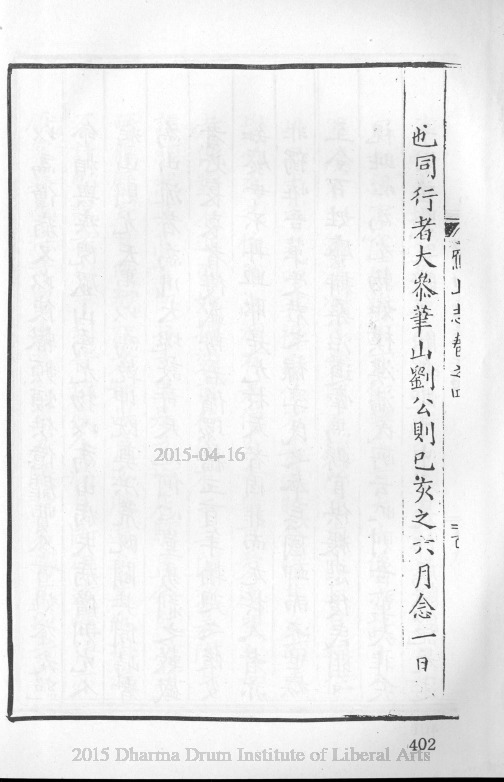 也同行者大叅華山劉公則己亥之六月念一日
山志卷之四
2015-04-16
402
2015 Dharma Drum Institute of Liberal Arts